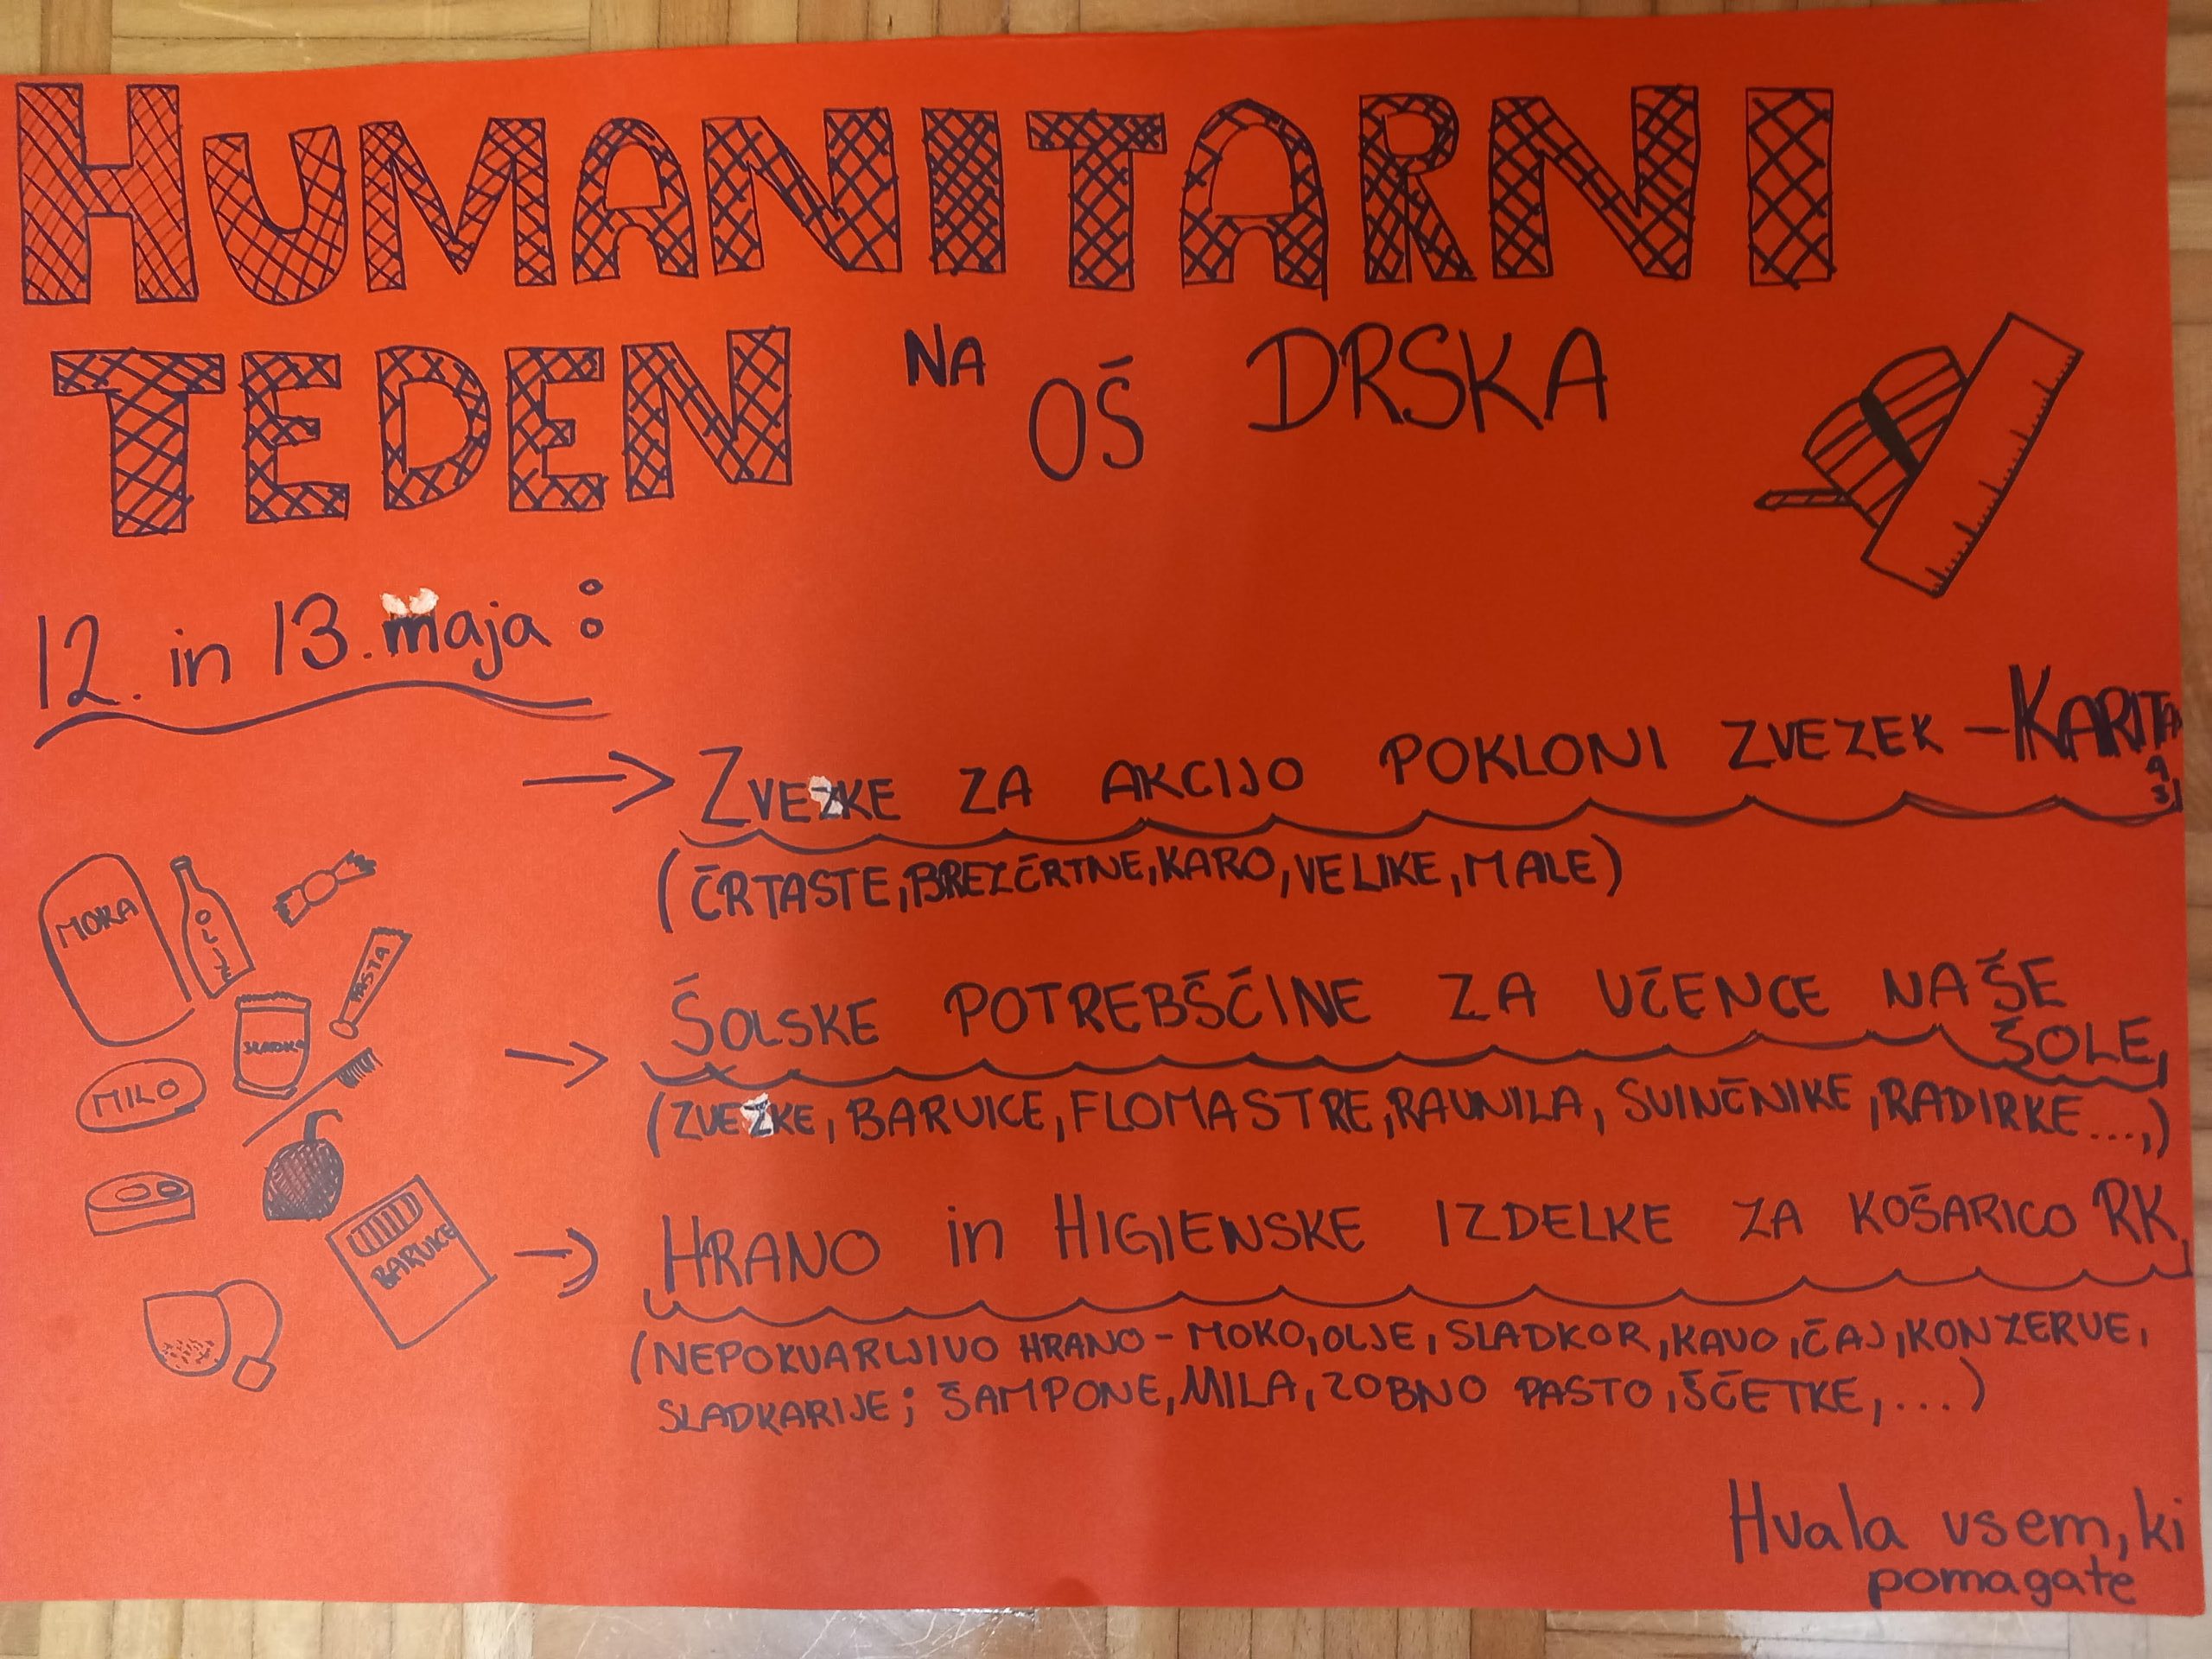 HUMANITARNI
TEDEN NA OŠ DRSKA
12. in 13. maja:
→ ZVEZKE ZA AKCIJO POKLONI ZVEZEK – KARITAS,
(ČRTASTE, BREZČRTNE, KARO, VELIKE, MALE)
→ ŠOLSKE POTREBŠČINE ZA UČENCE NAŠE
ŠOLE,
(ZVEZKE, BARVICE, FLOMASTRE, RAVNILA, SVINČNIKE, RADIRKE...,)
→ HRANO in HIGIENSKE IZDELKE ZA KOŠARICO RK,
(NEPOKVARLJIVO HRANO - MOKO, OLJE, SLADKOR, KAVO, ČAJ, KONZERVE,
SLADKARIJE; ŠAMPONE, MILA, ZOBNO PASTO, ŠČETKE, ...)
MOKA
OLJE
PASTA
MILO
BARVICE
Hvala vsem, ki
pomagate